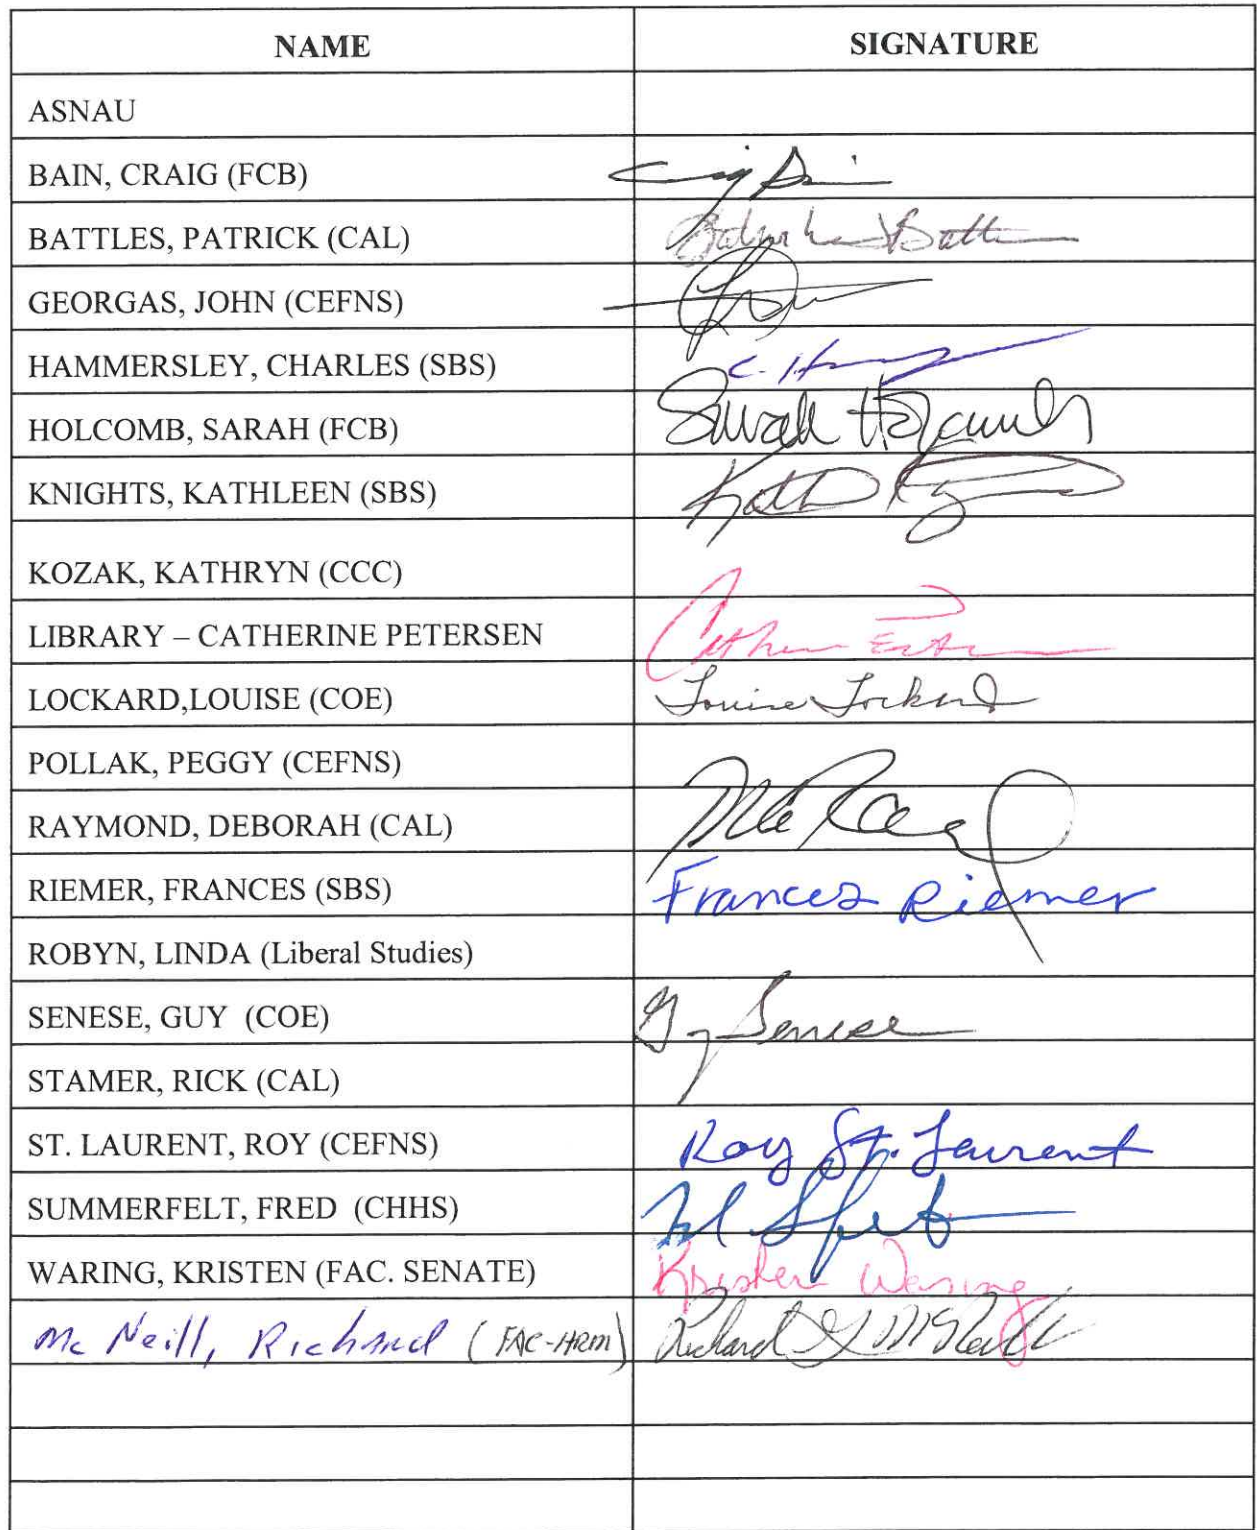 NAME SIGNATURE
ASNAU
BAIN, CRAIG (FCB)
BATTLES, PATRICK (CAL)
GEORGAS, JOHN (CEFNS)
HAMMERSLEY, CHARLES (SBS) C.
HOLCOMB, SARAH (FCB) Sarah Holcomb
KNIGHTS, KATHLEEN (SBS)
KOZAK, KATHRYN (CCC)
LIBRARY – CATHERINE PETERSEN
LOCKARD,LOUISE (COE) Louise Lockard
POLLAK, PEGGY (CEFNS)
RAYMOND, DEBORAH (CAL)
RIEMER, FRANCES (SBS) Frances Riemer
ROBYN, LINDA (Liberal Studies)
SENESE, GUY (COE) Guy Senese
STAMER, RICK (CAL)
ST. LAURENT, ROY (CEFNS) Roy St. Laurent
SUMMERFELT, FRED (CHHS)
WARING, KRISTEN (FAC. SENATE) Kristen Waring
Mc Neill, Richard (FAC-HRM) Richard McNeill